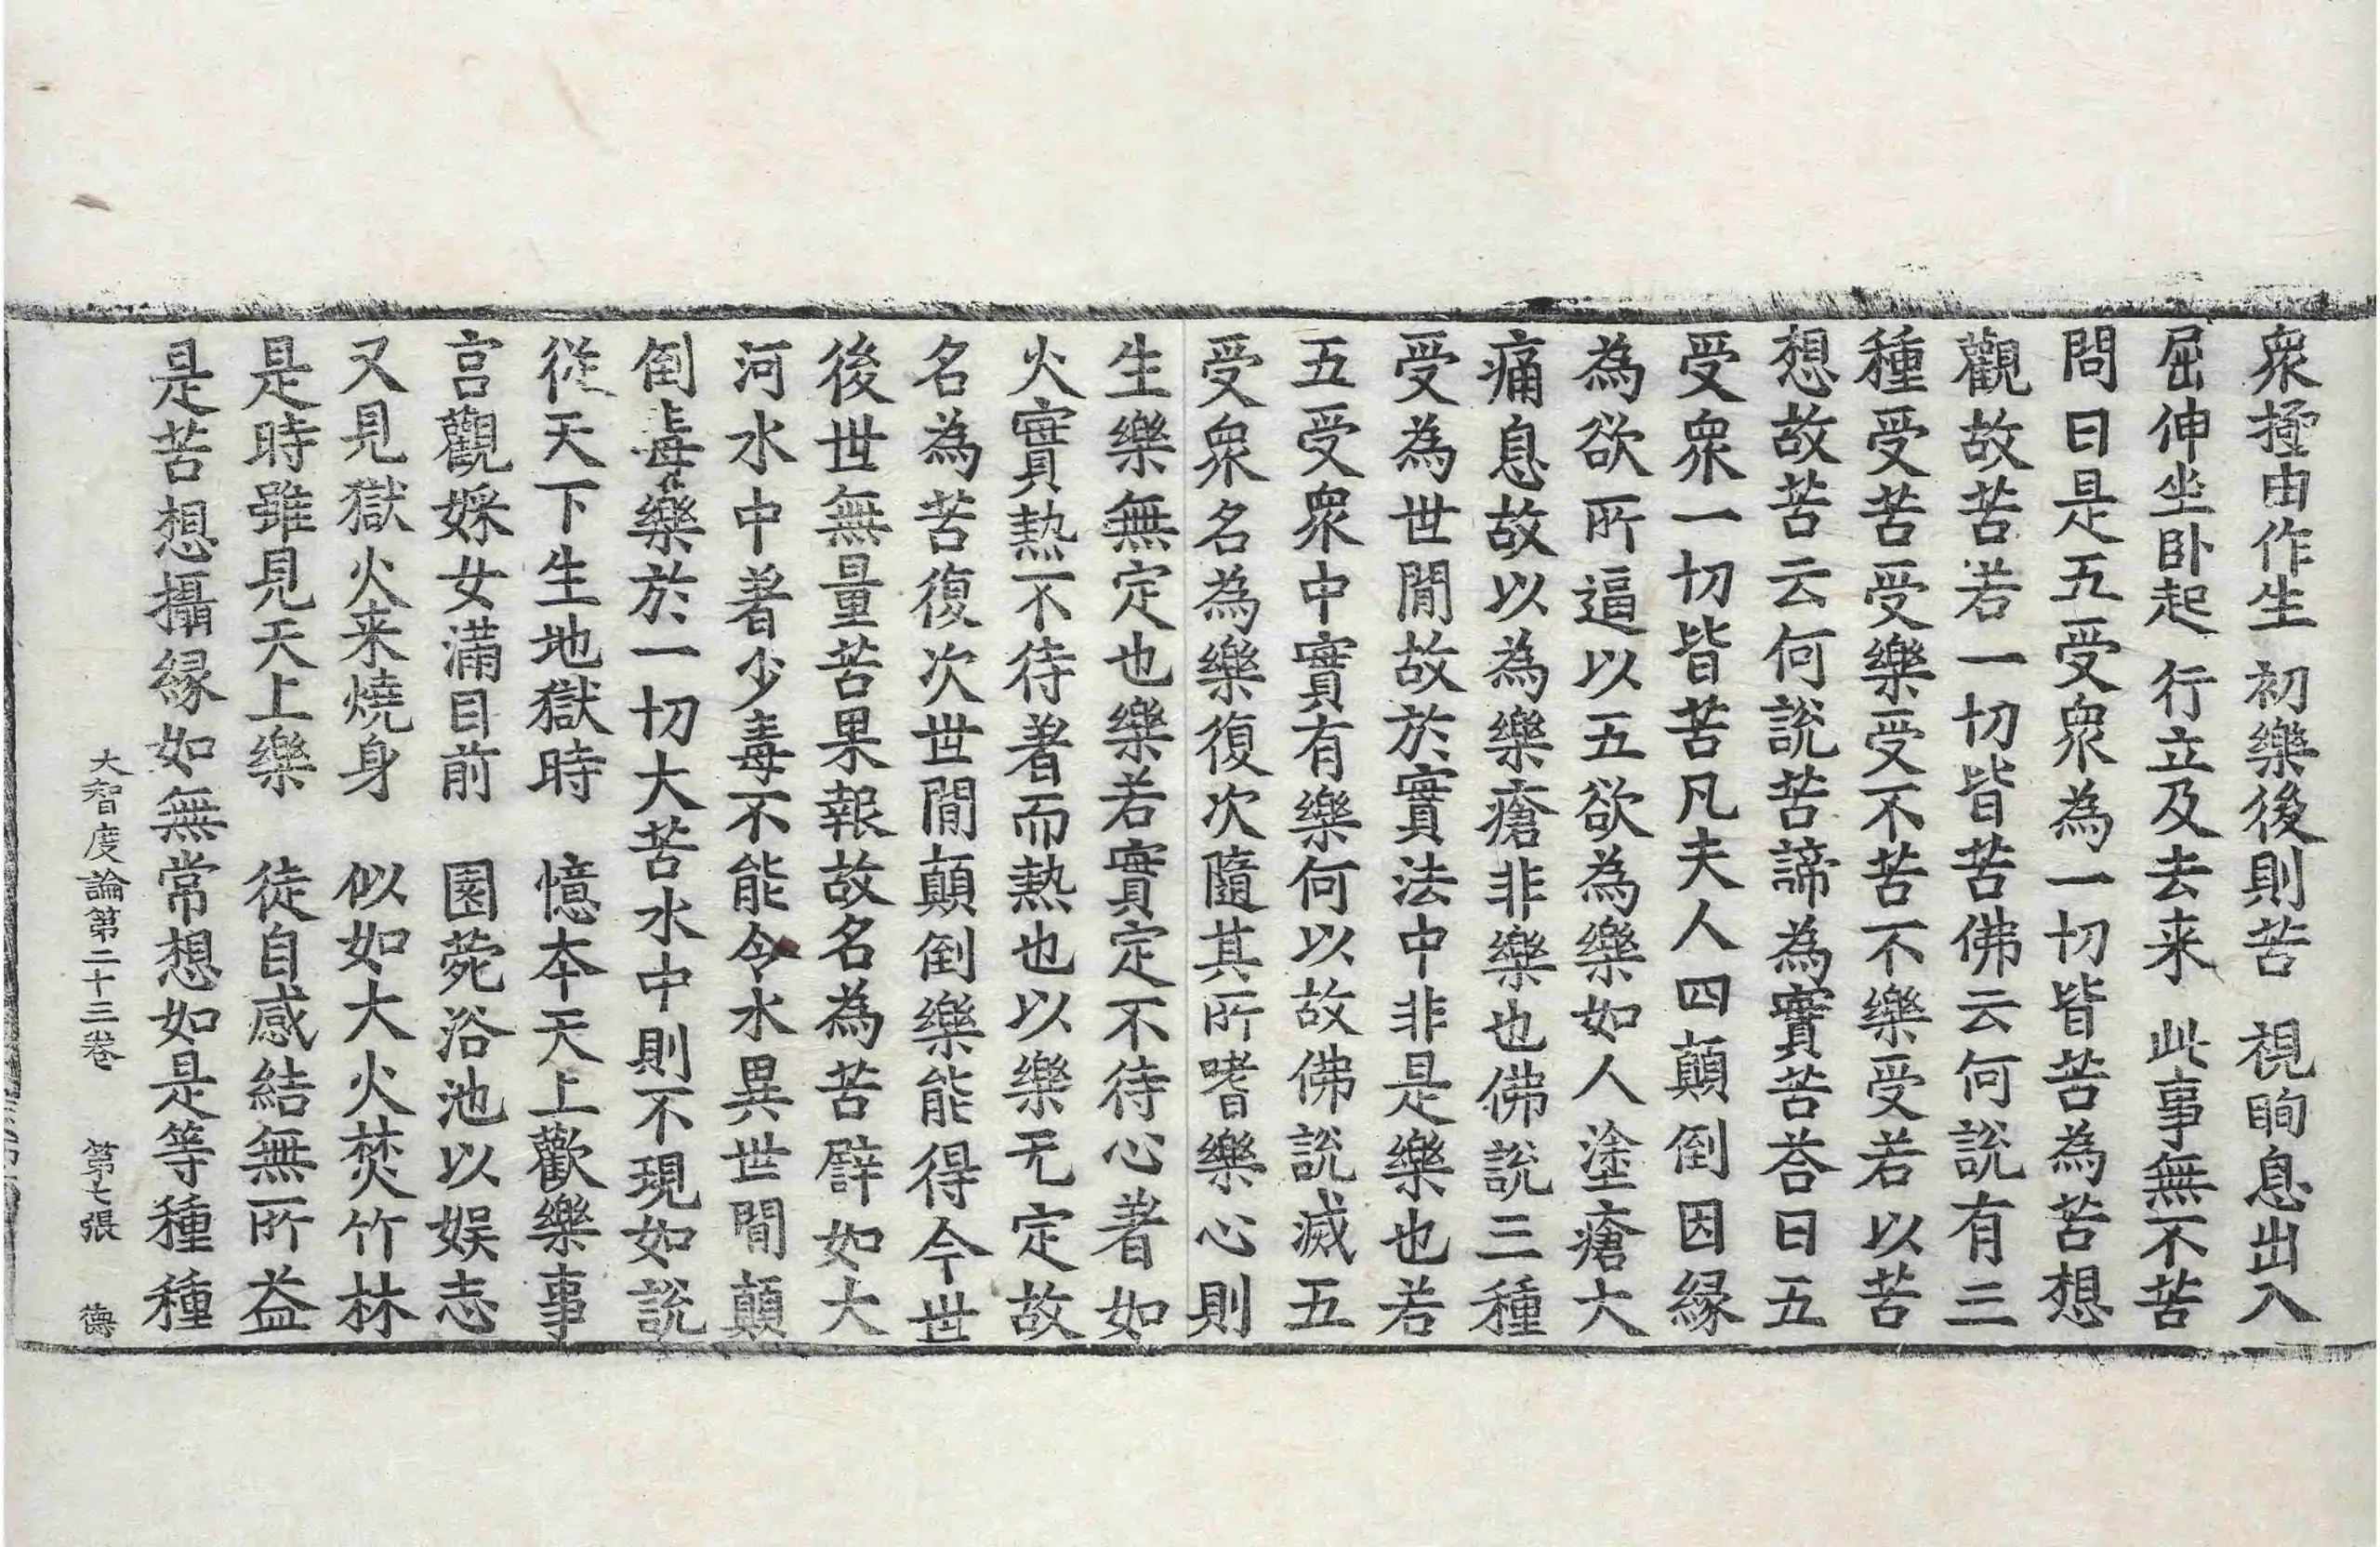 衆撓由作生　初樂後則苦　視眴息出入
屈伸坐卧起　行立及去来　此事無不苦
問曰是五受衆為一切皆苦為苦想
觀故苦若一切皆苦佛云何說有三
種受苦受樂受不苦不樂受若以苦
想故苦云何說苦諦為實苦荅曰五
受衆一切皆苦凡夫人四顛倒因縁
為欲所逼以五欲為樂如人塗瘡大
痛息故以為樂瘡非樂也佛說三種
受為世閒故於實法中非是樂也若
五受衆中實有樂何以故佛說滅五
受衆名為樂復次隨其所嗜樂心則
生樂無定也樂若實定不待心著如
火實熱不待著而熱也以樂无定故
名為苦復次世閒顛倒樂能得今世
後世無量苦果報故名為苦譬如大
河水中著少毒不能令水異世閒顛
倒毒樂於一切大苦水中則不現如說
從天下生地獄時　憶本天上歡樂事
宫觀婇女滿目前　園菀浴池以娱志
又見獄火来燒身　似如大火焚竹林
是時雖見天上樂　徒自感結無所益
是苦想攝縁如無常想如是等種種
大智度論第二十三卷　第七張　德